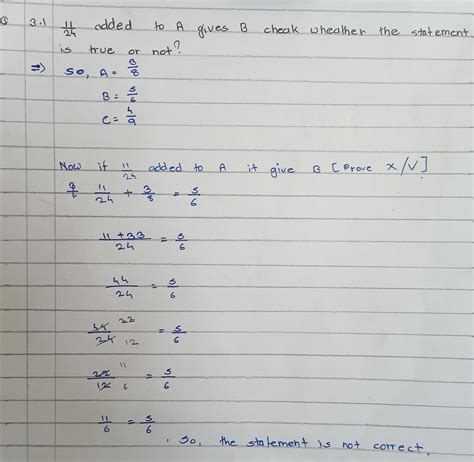 3.1 11/24 added to A gives B cheak whealher the statement
is true or not?
⇒ so, A = 3/8
B = 5/6
C = 4/9
Now if 11/24 added to A it give B [Prove X/√]
11/24 + 3/8 = 5/6
11+33/24 = 5/6
44/24 = 5/6
44/24 22/12 = 5/6
22/12 11/6 = 5/6
11/6 = 5/6
. So, the statement is not correct.